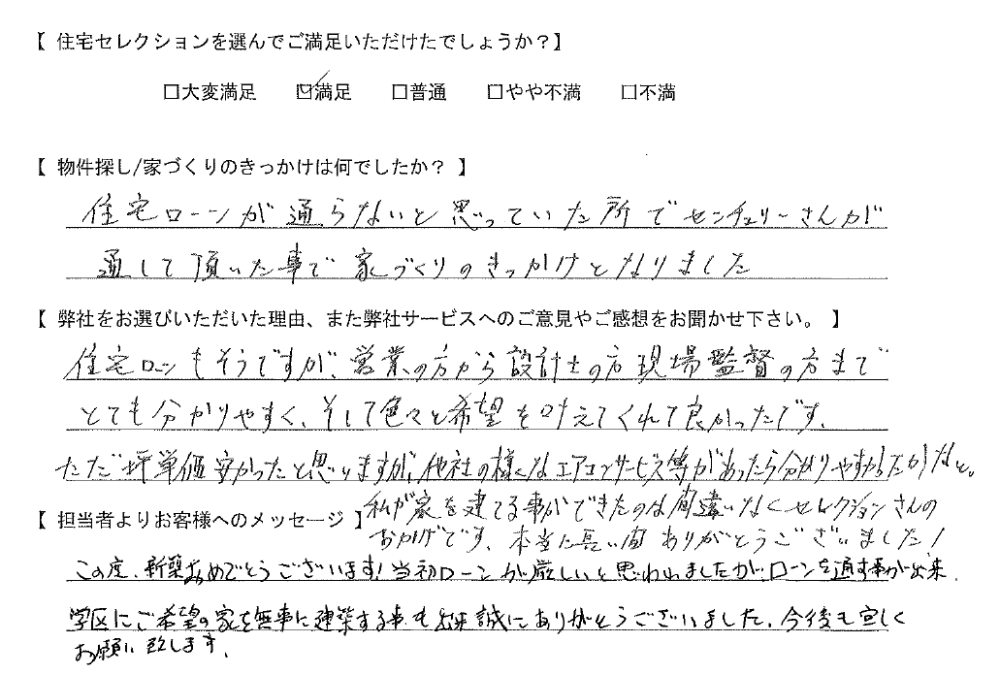 【 住宅セレクションを選んでご満足いただけたでしょうか？】
□大変満足 ☑満足 □普通 □やや不満 □不満
【 物件探し/家づくりのきっかけは何でしたか？ 】
住宅ローンが通らないと思っていた所でセンチュリーさんが
通して頂いた事で家づくりのきっかけとなりました
【 弊社をお選びいただいた理由、また弊社サービスへのご意見やご感想をお聞かせ下さい。 】
住宅ローンもそうですが、営業の方から設計士の方現場監督の方まで
とても分かりやすく、そして色々と希望を叶えてくれて良かったです。
ただ坪単価安かったと思いますが、他社の様なエアコンサービス等があったら分かりやすかったかなと。
私が家を建てる事ができたのは間違いなくセレクションさんの
おかげです、本当に長い間ありがとうございました！
【 担当者よりお客様へのメッセージ 】
この度、新築おめでとうございます！当初ローンが厳しいと思われましたが、ローンを通す事が出来、
学区にご希望の家を無事に建築する事も出来誠にありがとうございました。今後も宜しく
お願い致します。